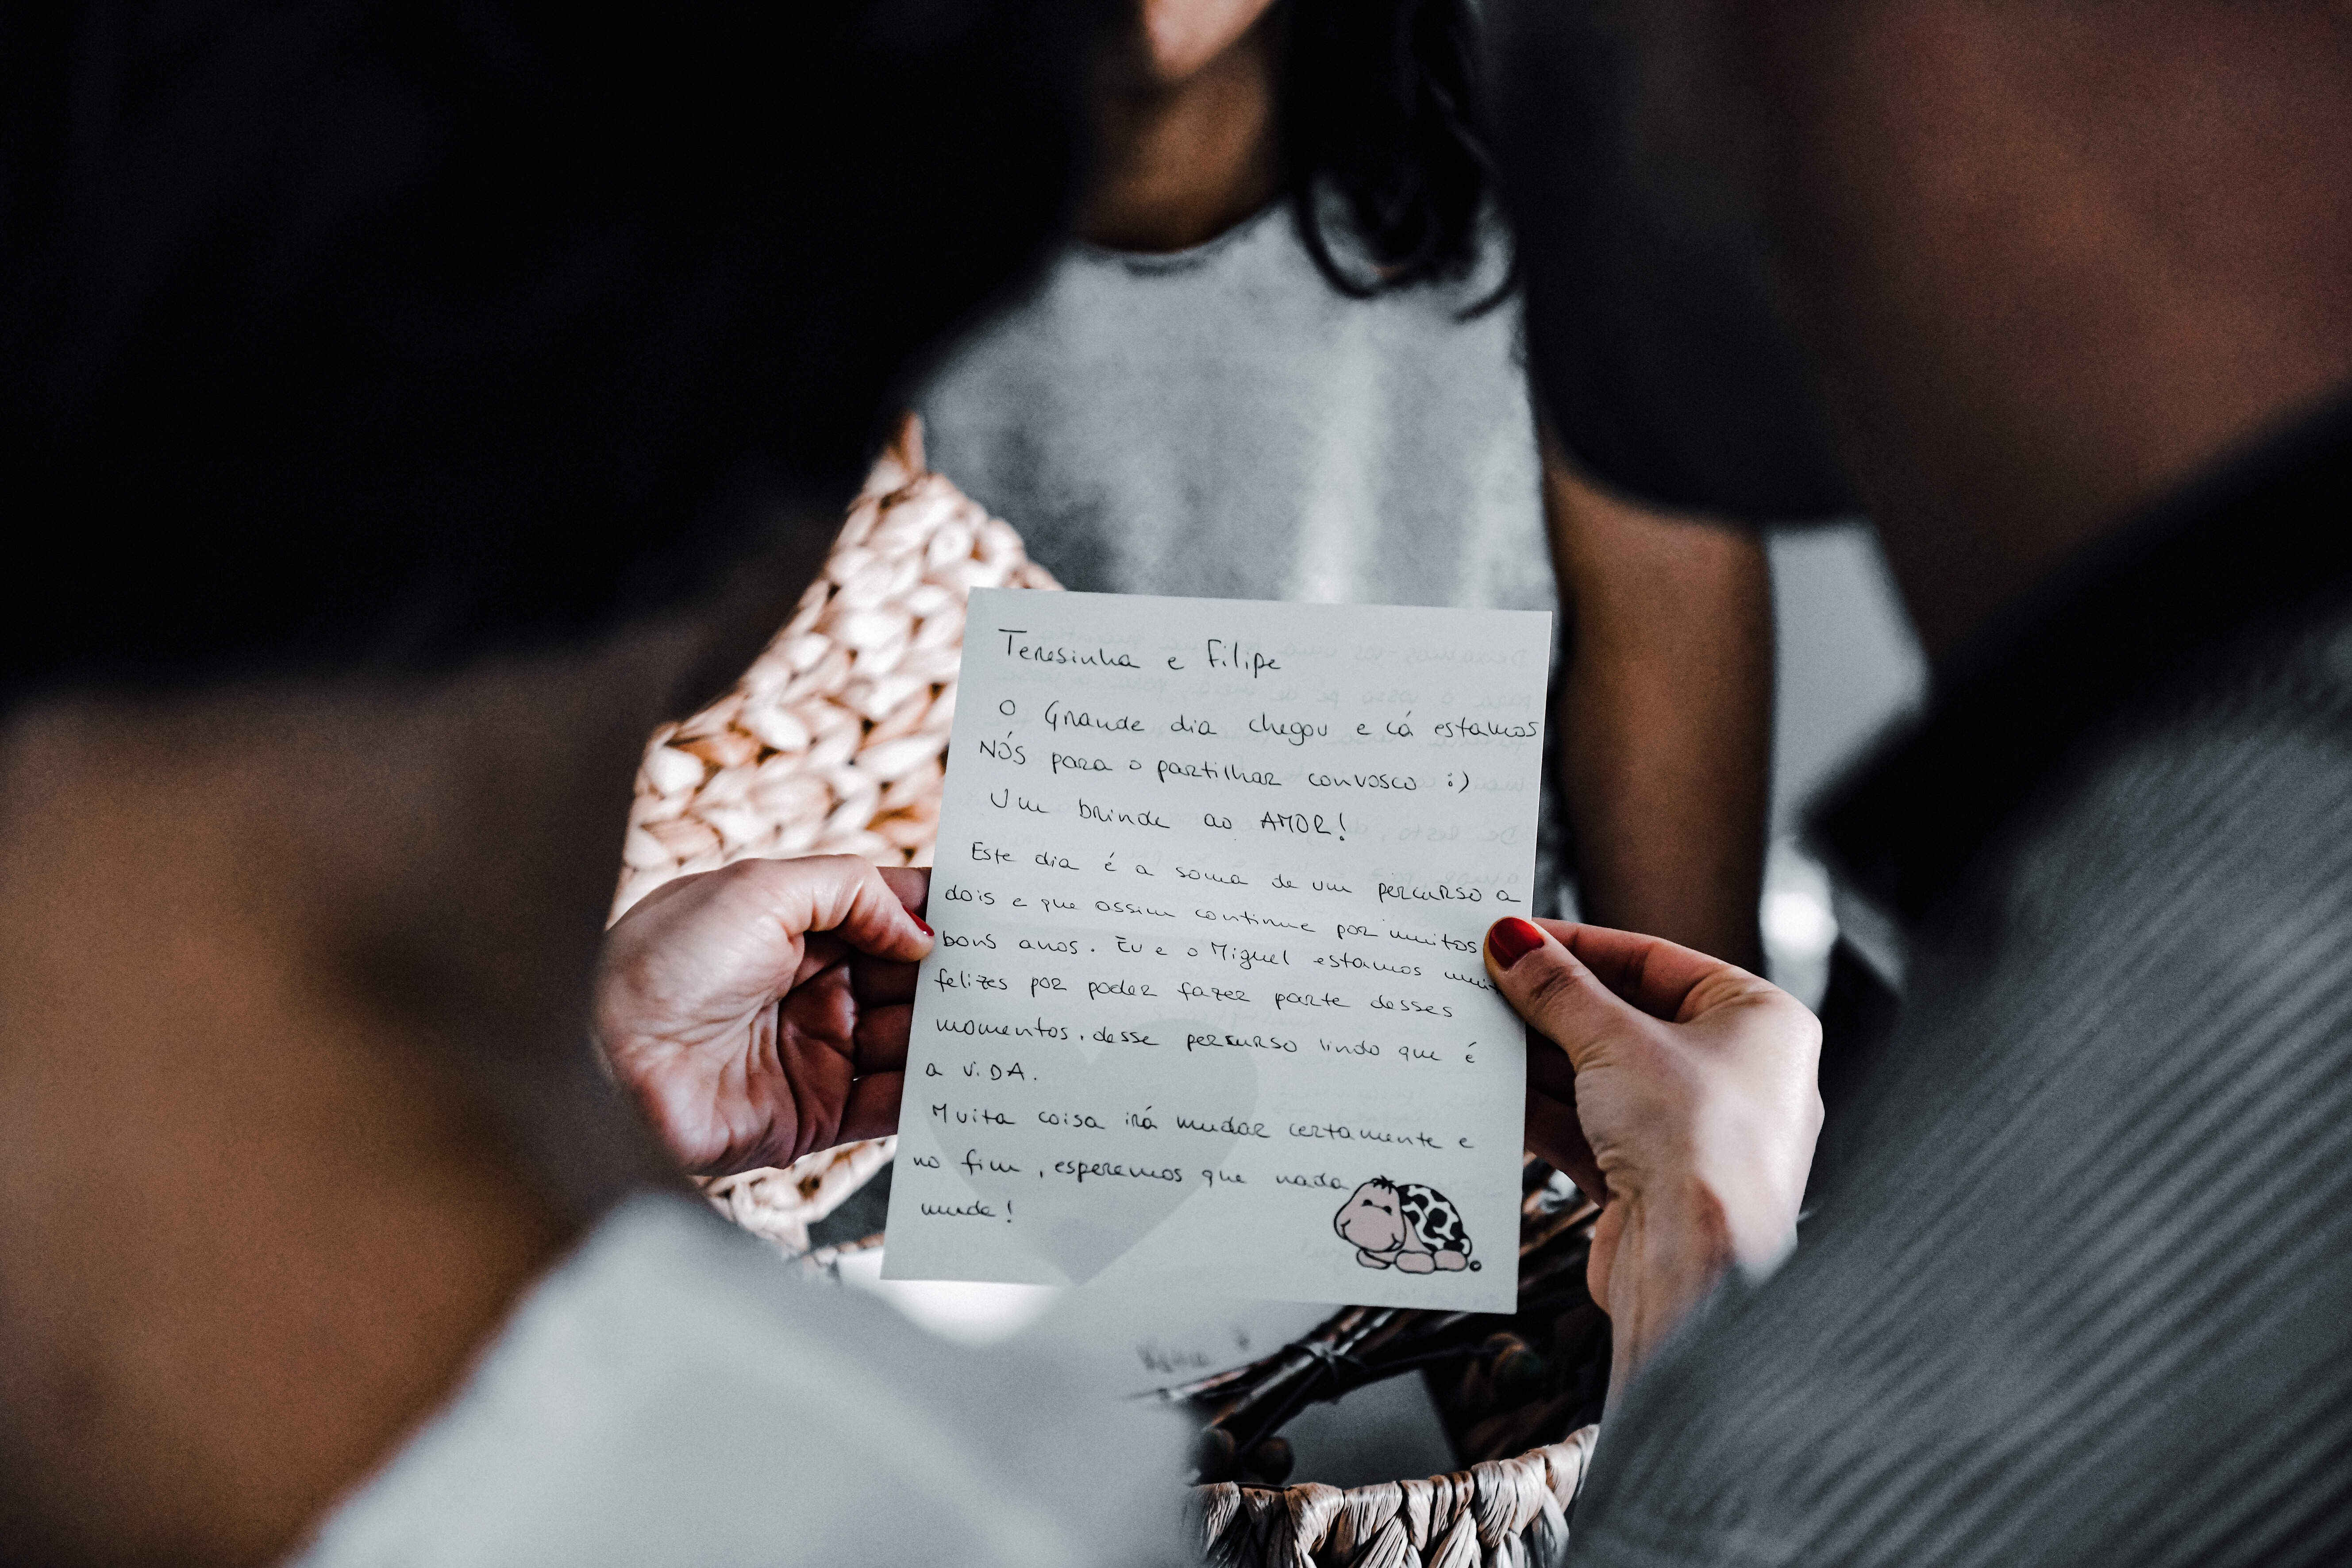 Teresinha e Filipe
O Grande dia chegou e cá estamos
NÓS para o partilhar convosco :)
Um brinde ao AMOR!
Este dia é a soma de um percurso a
dois e que assim continue por muitos
bons anos. Eu e o Miguel estamos
felizes por poder fazer parte desses
momentos, desse percurso lindo que é
a ViDA.
Muita coisa irá mudar certamente e
no fim, esperemos que nada
mude!